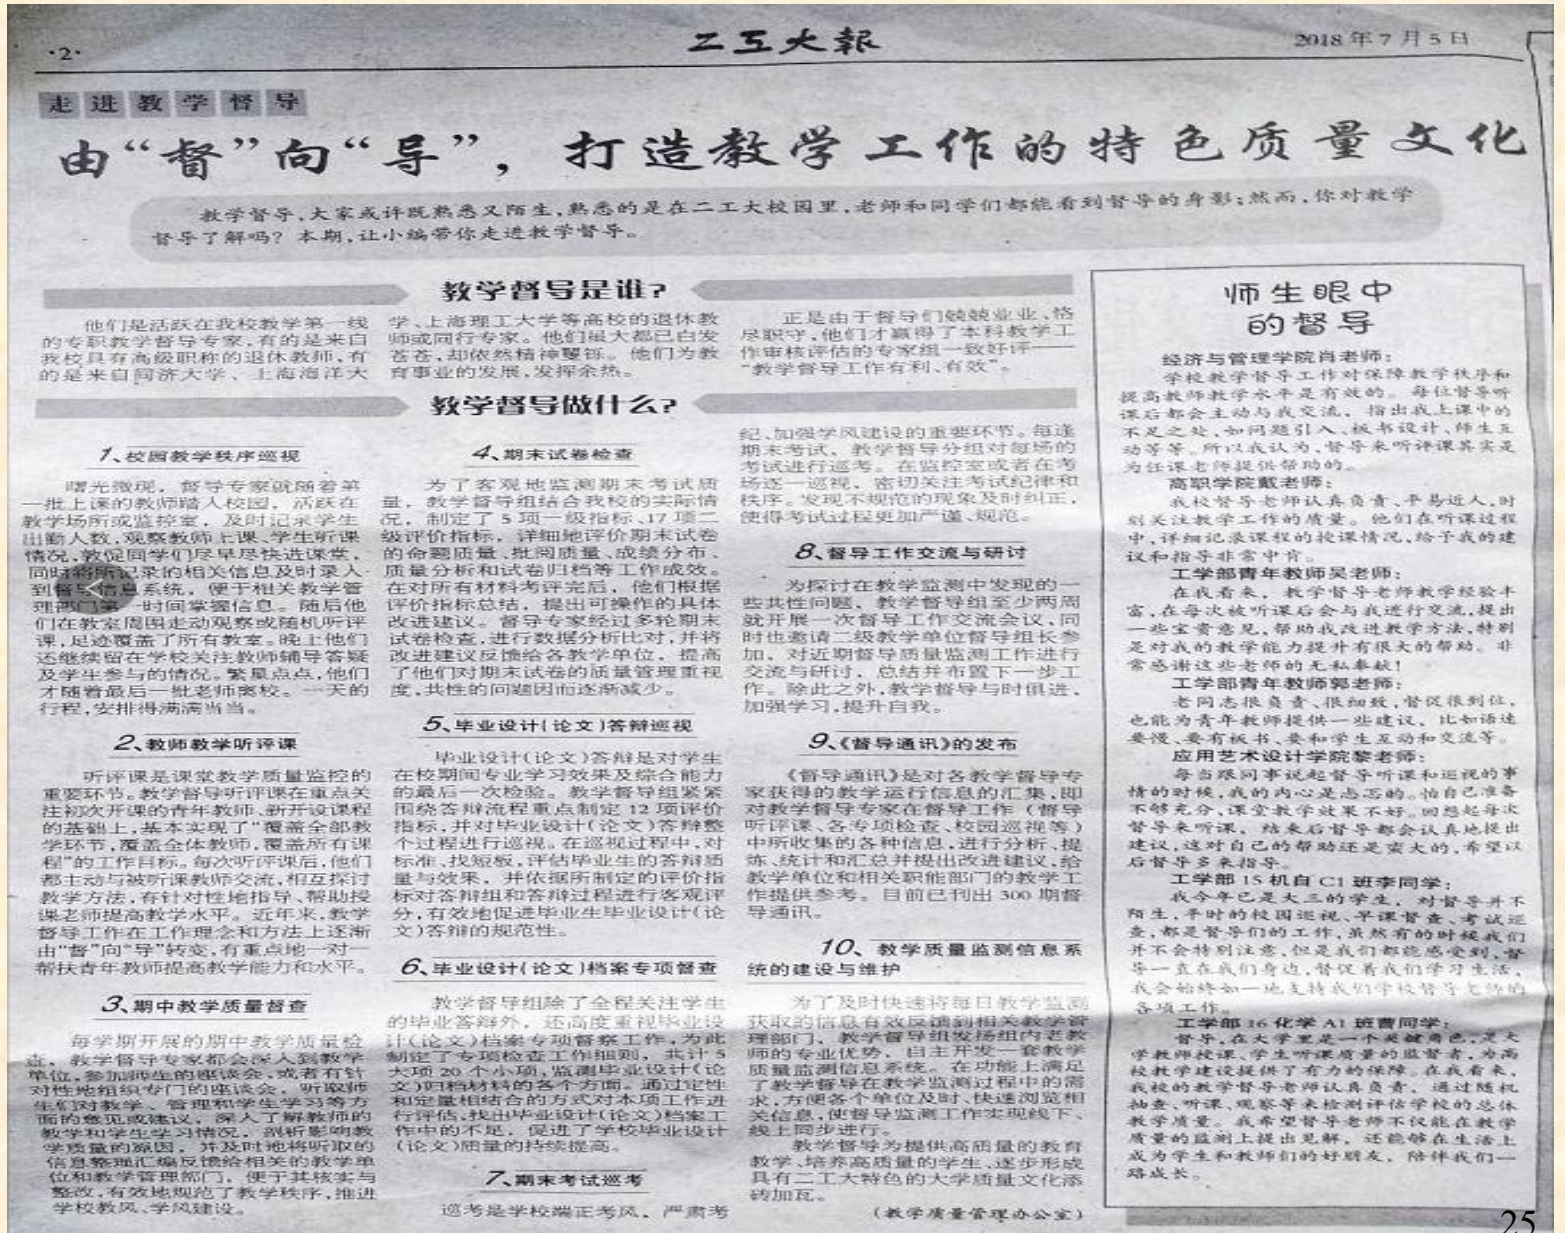 ·2·
二工大報
2018年7月5日
走进教学督导
由“督”向“导”，打造教学工作的特色质量文化
教学督导，大家或许既熟悉又陌生，熟悉的是在二工大校园里，老师和同学们都能看到督导的身影；然而，你对教学
督导了解吗？本期，让小编带你走进教学督导。
教学督导是谁？
他们是活跃在我校教学第一线
的专职教学督导专家，有的是来自
我校具有高级职称的退休教师，有
的是来自同济大学、上海海洋大
学、上海理工大学等高校的退休教
师或同行专家。他们虽大都已白发
苍苍，却依然精神矍铄。他们为教
育事业的发展，发挥余热。
正是由于督导们兢兢业业、恪
尽职守，他们才赢得了本科教学工
作审核评估的专家组一致好评——
“教学督导工作有利、有效”。
教学督导做什么？
1、校园教学秩序巡视
曙光微现，督导专家就随着第
一批上课的教师踏入校园，活跃在
教学场所或监控室，及时记录学生
出勤人数，观察教师上课、学生听课
情况，敦促同学们尽早尽快进课堂，
同时将所记录的相关信息及时录入
到督导信息系统，便于相关教学管
理部门第一时间掌握信息。随后他
们在教室周围走动观察或随机听评
课，足迹覆盖了所有教室。晚上他们
还继续留在学校关注教师辅导答疑
及学生参与的情况。繁星点点，他们
才随着最后一批老师离校。一天的
行程，安排得满满当当。
2、教师教学听评课
听评课是课堂教学质量监控的
重要环节。教学督导听评课在重点关
注初次开课的青年教师、新开设课程
的基础上，基本实现了“覆盖全部教
学环节，覆盖全体教师，覆盖所有课
程”的工作目标。每次听评课后，他们
都主动与被听课教师交流，相互探讨
教学方法，有针对性地指导、帮助授
课老师提高教学水平。近年来，教学
督导工作在工作理念和方法上逐渐
由“督”向“导”转变，有重点地一对一
帮扶青年教师提高教学能力和水平。
3、期中教学质量督查
每学期开展的期中教学质量检
查，教学督导专家都会深入到教学
单位，参加师生的座谈会，或者有针
对性地组织专门的座谈会，听取师
生们对教学、管理和学生学习等方
面的意见或建议，深入了解教师的
教学和学生学习情况，剖析影响教
学质量的原因，并及时地将听取的
信息整理汇编反馈给相关的教学单
位和教学管理部门，便于其核实与
整改，有效地规范了教学秩序，推进
学校教风、学风建设。
4、期末试卷检查
为了客观地监测期末考试质
量，教学督导组结合我校的实际情
况，制定了5项一级指标、17项二
级评价指标，详细地评价期末试卷
的命题质量、批阅质量、成绩分布、
质量分析和试卷归档等工作成效。
在对所有材料考评完后，他们根据
评价指标总结，提出可操作的具体
改进建议。督导专家经过多轮期末
试卷检查，进行数据分析比对，并将
改进建议反馈给各教学单位，提高
了他们对期末试卷的质量管理重视
度，共性的问题因而逐渐减少。
5、毕业设计（论文）答辩巡视
毕业设计（论文）答辩是对学生
在校期间专业学习效果及综合能力
的最后一次检验。教学督导组紧紧
围绕答辩流程重点制定12项评价
指标，并对毕业设计（论文）答辩整
个过程进行巡视。在巡视过程中，对
标准、找短板，评估毕业生的答辩质
量与效果，并依据所制定的评价指
标对答辩组和答辩过程进行客观评
分，有效地促进毕业生毕业设计（论
文）答辩的规范性。
6、毕业设计（论文）档案专项督查
教学督导组除了全程关注学生
的毕业答辩外，还高度重视毕业设
计（论文）档案专项督察工作，为此
制定了专项检查工作细则，共计5
大项20个小项，监测毕业设计（论
文）归档材料的各个方面。通过定性
和定量相结合的方式对本项工作进
行评估，找出毕业设计（论文）档案工
作中的不足，促进了学校毕业设计
（论文）质量的持续提高。
7、期末考试巡考
巡考是学校端正考风，严肃考
纪、加强学风建设的重要环节。每逢
期末考试，教学督导分组对每场的
考试进行巡考。在监控室或者在考
场逐一巡视，密切关注考试纪律和
秩序。发现不规范的现象及时纠正，
使得考试过程更加严谨、规范。
8、督导工作交流与研讨
为探讨在教学监测中发现的一
些共性问题，教学督导组至少两周
就开展一次督导工作交流会议，同
时也邀请二级教学单位督导组长参
加，对近期督导质量监测工作进行
交流与研讨，总结并布置下一步工
作。除此之外，教学督导与时俱进，
加强学习，提升自我。
9、《督导通讯》的发布
《督导通讯》是对各教学督导专
家获得的教学运行信息的汇集，即
对教学督导专家在督导工作（督导
听评课、各专项检查、校园巡视等）
中所收集的各种信息，进行分析、提
炼、统计和汇总并提出改进建议，给
教学单位和相关职能部门的教学工
作提供参考。目前已刊出300期督
导通讯。
10、教学质量监测信息系
统的建设与维护
为了及时快速将每日教学监测
获取的信息有效反馈到相关教学管
理部门，教学督导组发扬组内老教
师的专业优势，自主开发一套教学
质量监测信息系统。在功能上满足
了教学督导在教学监测过程中的需
求，方便各个单位及时、快速浏览相
关信息，使督导监测工作实现线下、
线上同步进行。
教学督导为提供高质量的教育
教学、培养高质量的学生、逐步形成
具有二工大特色的大学质量文化添
砖加瓦。
（教学质量管理办公室）
师生眼中
的督导
经济与管理学院肖老师：
学校教学督导工作对保障教学秩序和
提高教师教学水平是有效的。每位督导听
课后都会主动与我交流，指出我上课中的
不足之处，如问题引入、板书设计、师生互
动等等。所以我认为，督导来听评课其实是
为任课老师提供帮助的。
高职学院戴老师：
我校督导老师认真负责、平易近人，时
刻关注教学工作的质量。他们在听课过程
中，详细记录课程的授课情况，给予我的建
议和指导非常中肯。
工学部青年教师吴老师：
在我看来，教学督导老师教学经验丰
富，在每次被听课后会与我进行交流，提出
一些宝贵意见，帮助我改进教学方法，特别
是对我的教学能力提升有很大的帮助。非
常感谢这些老师的无私奉献！
工学部青年教师郭老师：
老同志很负责、很细致，督促很到位，
也能为青年教师提供一些建议，比如语速
要慢、要有板书、要和学生互动和交流等。
应用艺术设计学院黎老师：
每当跟同事说起督导听课和巡视的事
情的时候，我的内心是忐忑的。怕自己准备
不够充分，课堂教学效果不好。回想起每次
督导来听课，结束后督导都会认真地提出
建议，这对自己的帮助还是蛮大的，希望以
后督导多来指导。
工学部15机自C1班李同学：
我今年已是大三的学生，对督导并不
陌生，平时的校园巡视、早课督查、考试巡
查，都是督导们的工作，虽然有的时候我们
并不会特别注意，但是我们都能感受到，督
导一直在我们身边，督促着我们学习生活，
我会始终如一地支持我们学校督导老师的
各项工作。
工学部16化学A1班曹同学：
督导，在大学里是一个关键角色，是大
学教师授课、学生听课质量的监督者，为高
校教学建设提供了有力的保障。在我看来，
我校的教学督导老师认真负责，通过随机
抽查、听课、观察等来检测评估学校的总体
教学质量。我希望督导老师不仅能在教学
质量的监测上提出见解，还能够在生活上
成为学生和教师们的好朋友，陪伴我们一
路成长。
25